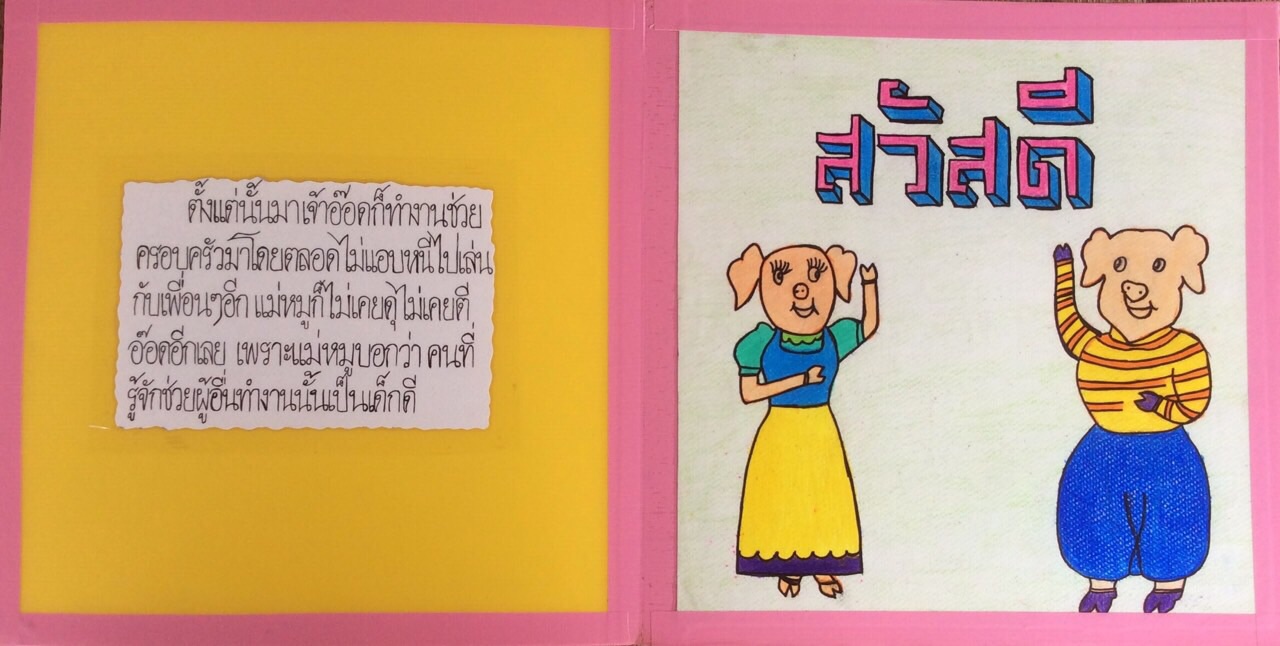 ตั้งแต่นั้นมาเจ้าอ๊อดก็ทำงานช่วย
ครอบครัวมาโดยตลอดไม่แอบหนีไปเล่น
กับเพื่อนๆอีก แม่หมูก็ไม่เคยดุไม่เคยตี
อ๊อดอีกเลย เพราะแม่หมูบอกว่า คนที่
รู้จักช่วยผู้อื่นทำงานนั้นเป็นเด็กดี
สวัสดี